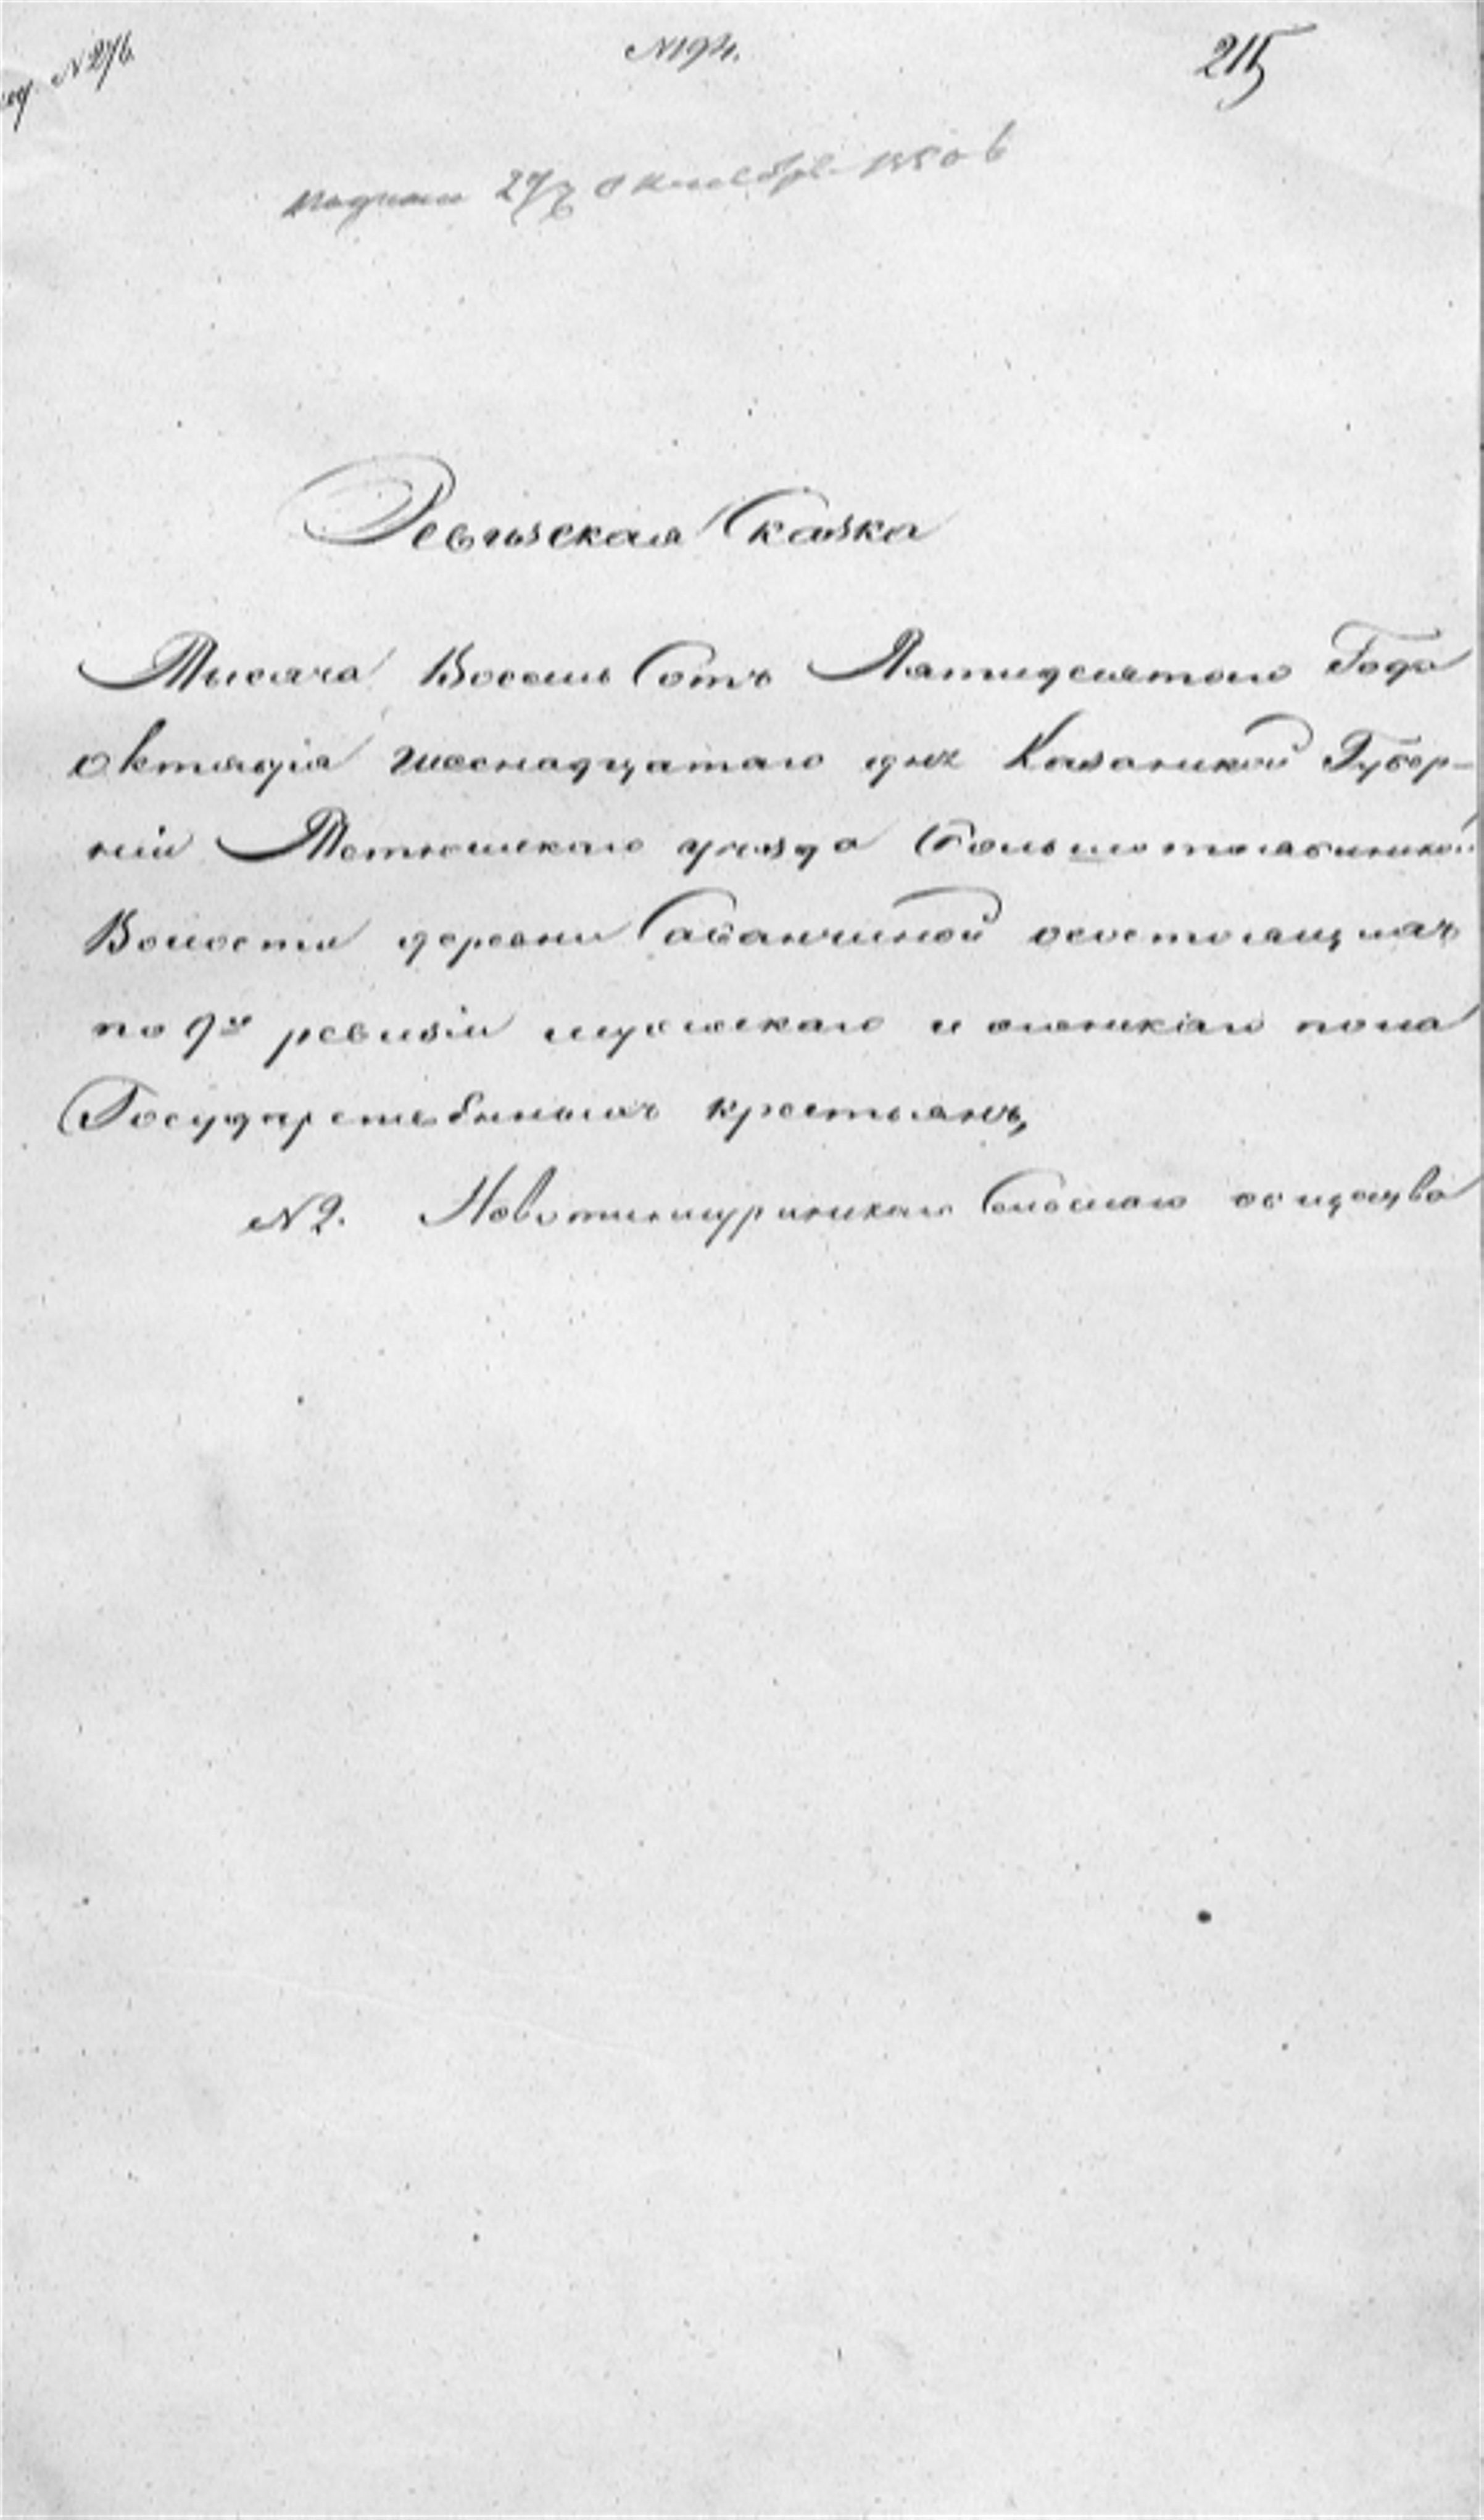 № 276
№ 194.
215
27 октября 1850 г
Ревизская Сказка
Тысяча Восемь Сотъ Пятидесятого Года
октября шеснадцатаго дня Казанской Губер-
ніи Тетюшскаго уезда Большетоябинской
Волости деревни Абанчиной о состоящихъ
по 9й ревизіи мужескаго и женскаго пола
Государственныхъ крестьянъ,
№ 2. Сельскаго общества